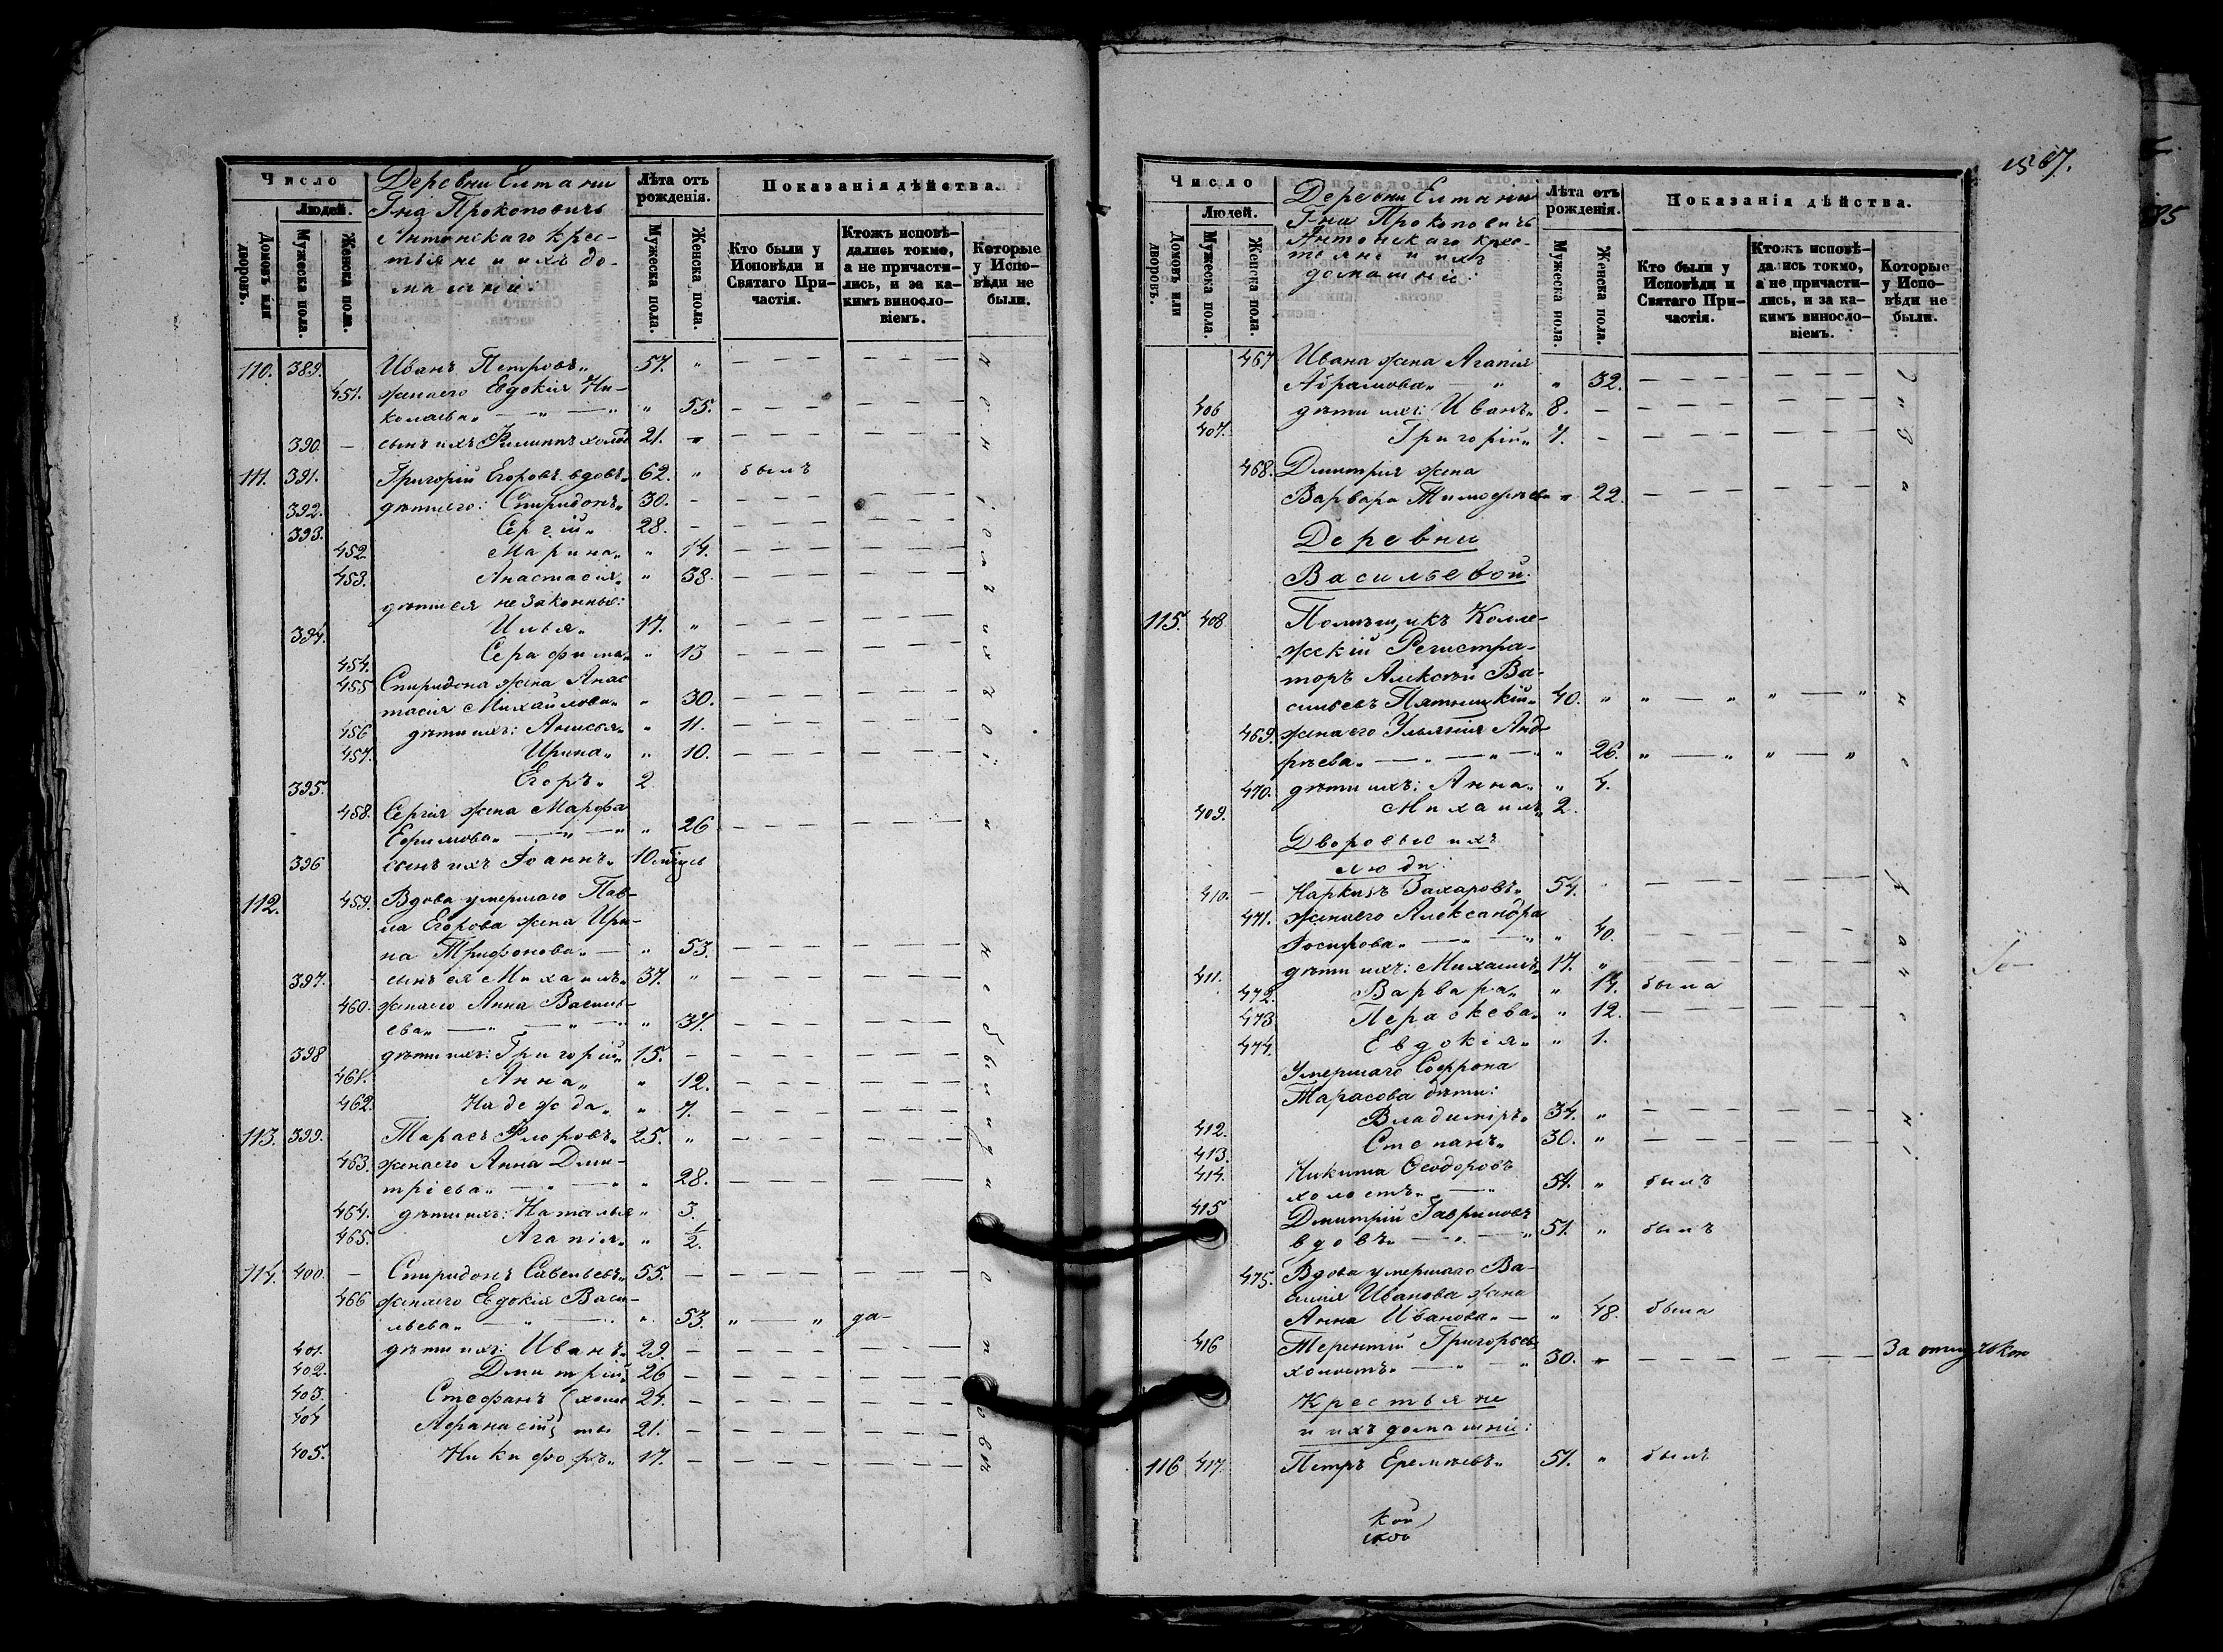 Число
Людей.
Домовъ или дворовъ.
Мужеска пола.
Женска пола.
Деревни Елтани
Г-на Прокоповичъ
Антонскаго крес-
тьяне и ихъ до-
машніи:
Лѣта отъ рожденія.
Мужеска пола.
Женска пола.
Показанія дѣйства.
Кто были у Исповѣди и Святаго Причастія.
Ктожъ исповѣдались токмо, а не причастились, и за какимъ винословіемъ.
Которые у Исповѣди не были.
110. 389. Иванъ Петровъ 57. "
451. жена его Евдокія Ни-
колаева " 55.
390. – сынъ ихъ Филиппъ холос 21.
111. 391. Григорій Егоровъ вдовъ 62. " былъ
392. дѣти его: Спиридонъ 30. –
393. Сергій 28. –
452. Марина " 14.
453. Анастасія " 38.
дѣти ея незаконные:
394. Илья 17. "
454. Серафима " 13
455 Спиридона жена Анас
тасія Михайлова " 30.
456 дѣти ихъ: Анисья " 11.
457. Ирина " 10.
395. Егоръ 2
458. Сергія жена Марфа
Ефимова " 26
396 сынъ ихъ Іоаннъ 10 мѣсяц
112. 459. Вдова умершаго Пав-
ла Егорова жена Ири-
на Трифонова " 53.
397. сынъ ея Михаилъ 37. "
460. жена его Анна Василь-
ева " 37.
398 дѣти ихъ: Григорій 15. –
461. Анна " 12.
462. Надежда " 7.
113. 399. Тарасъ Флоровъ 25. "
463. жена его Анна Дми-
тріева " 28.
464. дѣти ихъ: Наталья " 3.
465. Агапія " 1/2.
114. 400. – Спиридонъ Савельевъ 55. –
466 жена его Евдокія Васи-
льева " 53. " — " да–
401. дѣти ихъ: Иванъ 29. –
402. Дмитрій 26 –
403. Стефанъ } холос 24. –
404 Афанасій } ты 21. –
405. Никифоръ 17. –
1567.
585
Число
Людей.
Домовъ или дворовъ.
Мужеска пола.
Женска пола.
Деревни Елтани
Г-на Прокоповичъ
Антонскаго крес-
тьяне и ихъ
домашніи:
Лѣта отъ рожденія.
Мужеска пола.
Женска пола.
Показанія дѣйства.
Кто были у Исповѣди и Святаго Причастія.
Ктожъ исповѣдались токмо, а не причастились, и за какимъ винословіемъ.
Которые у Исповѣди не были.
467 Ивана жена Агапія
Абрамова " 32.
406 дѣти ихъ: Иванъ 8. –
407. Григорій 7. –
468. Дмитрія жена
Варвара Тимофеева " 22.
Деревни
Васильевой:
115. 408 Помѣщикъ Колле-
жскій Регистра-
торъ Алексѣй Ва-
сильевъ Пятницкій 40. " " — " " — "
469. жена его Ульянія Анд-
реева " 26. " — " " — "
470. дѣти ихъ: Анна " 4.
409. Михаилъ 2.
Дворовые ихъ
люди:
410. – Наркизъ Захаровъ 54. "
471. жена его Александра
Іосифова " 40.
411. дѣти ихъ: Михаилъ 17. "
472. Варвара " 14. была
473. Пераскева " 12.
474. Евдокія " 1.
Умершаго Софрона
Тарасова дѣти:
412. Владиміръ 34. "
413. Степанъ 30. "
414. Никита Ѳеодоровъ
холостъ 54. " былъ
415 Дмитрій Гавриловъ
вдовъ 51. " былъ
475. Вдова умершаго Ва-
силія Иванова жена
Анна Иванова " 48. была
416 Терентій Григорьевъ
холостъ 30. " За отлучкою
Крестьяне
и ихъ домашніи:
116 417. Петръ Еремѣевъ 51. " былъ